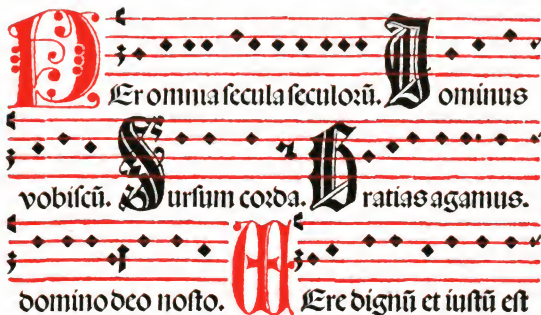 PEr omnia ſecula ſeculorū. Dominus
vobiſcū. Surſum corda. Gratias agamus.
domino deo noſto. VEre dignū et iuſtū eſt